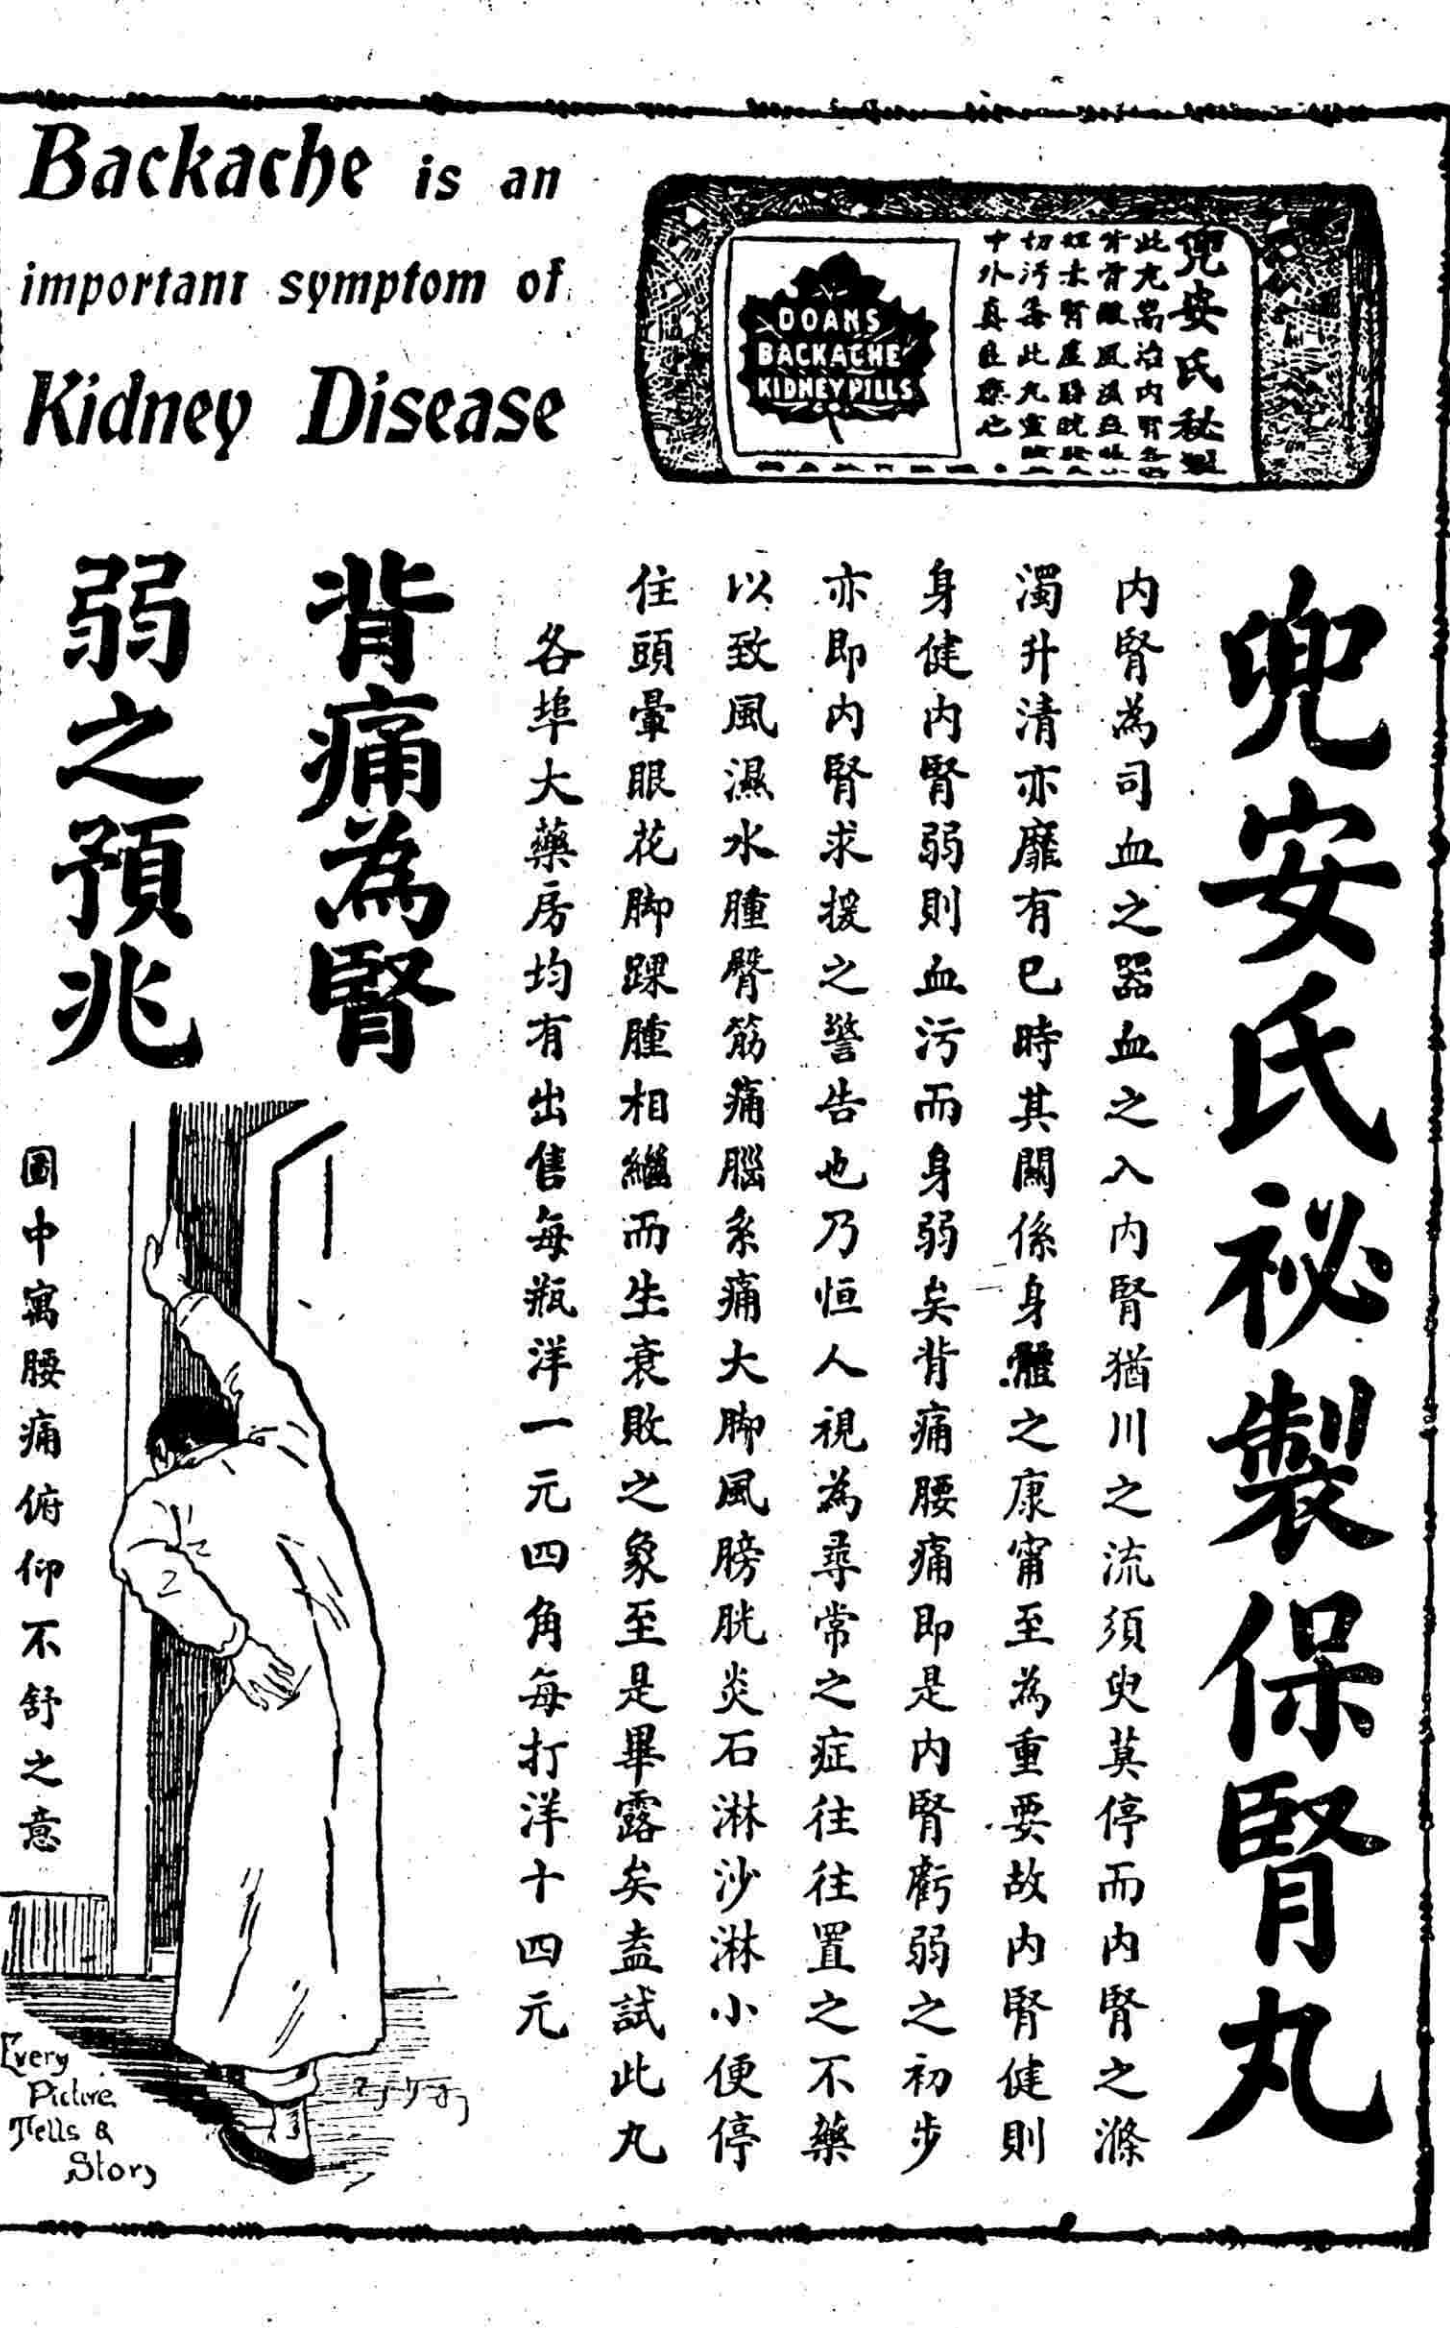 Backache is an
important symptom of
Kidney Disease
DOANS
BACKACHE
KIDNEY PILLS
兜安氏秘製
中外真狂藥也
兜安氏祕製保腎丸
内腎為司血之器血之入内腎猶川之流須臾莫停而内腎之滌
濁升清亦靡有已時其關係身體之康甯至為重要故内腎健則
身健内腎弱則血污而身弱矣背痛腰痛即是内腎虧弱之初步
亦即内腎求援之警告也乃恒人視為尋常之症往往置之不藥
以致風濕水腫臀筋痛腦系痛大脚風膀胱炎石淋沙淋小便停
住頭暈眼花脚踝腫相繼而生衰敗之象至是畢露矣盍試此丸
各埠大藥房均有出售每瓶洋一元四角每打洋十四元
背痛為腎
弱之預兆
圖中寓腰痛俯仰不舒之意
Every
Picture
Tells a
Story